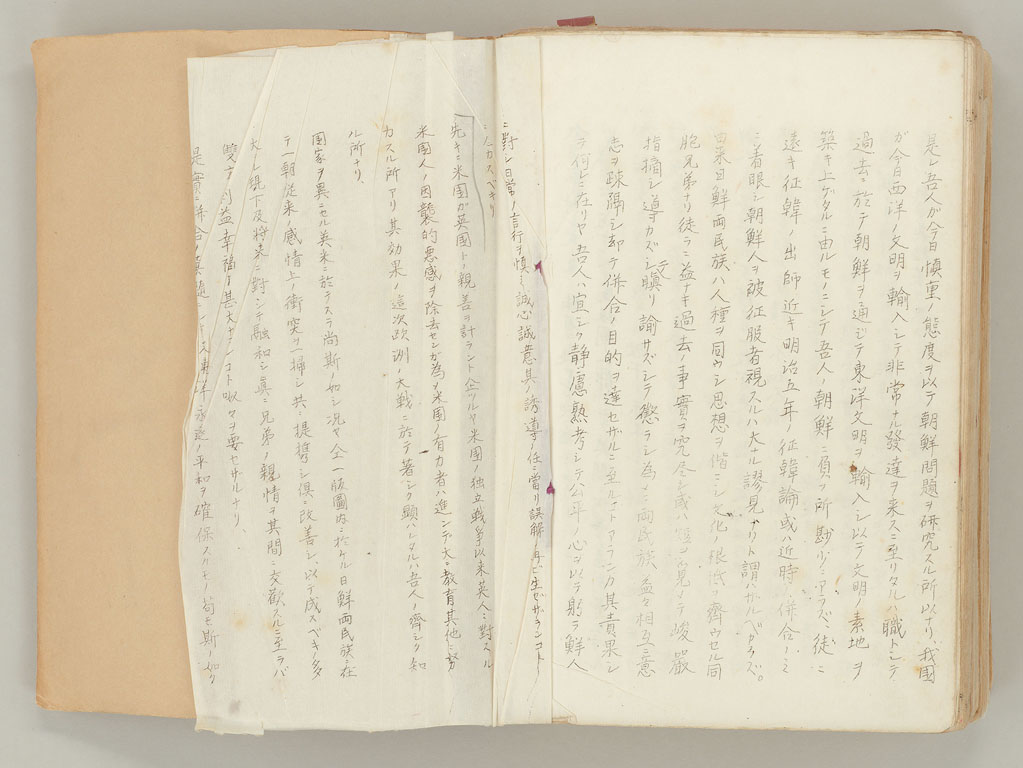 是レ吾人ガ今日慎重ノ態度ヲ以テ朝鮮問題ヲ研究スル所以ナリ、我国
ガ今日西洋ノ文明ヲ輸入シテ非常ナル発達ヲ来スニ至リタルハ職トシテ
過去ニ於テ朝鮮ヲ通ジテ東洋文明ヲ輸入シ以テ文明ノ素地ヲ
築キ上ゲタルニ由ルモノニシテ吾人ノ朝鮮ニ負フ所尠少ニアラズ、徒ニ
遠キ征韓ノ出師近キ明治五年ノ征韓論或ハ近時ノ併合ノミ
ニ着眼シ朝鮮人ヲ被征服者視スルハ大ナル謬見ナリト謂ハザルベカラズ。
由来日鮮両民族ハ人種ヲ同ウシ思想ヲ偕ニシ文化ノ根低ヲ齊ウセル同
胞兄弟ナリ徒ラニ益ナキ過去ノ事實ヲ究尽シ或ハ短ヲ見テ峻嚴
指摘シ導カズシテ瞋リ諭サズシテ懲ラシ為ニ両民族ノ益々相互ニ意
志ヲ疎隔シ却テ併合ノ目的ヲ達セザルニ至ルコトアランカ其責果シ
テ何レニ在リヤ吾人ハ宜シク静慮熟考シテ公平ノ心ヲ以テ躬ラ鮮人
ニ對シ日常ノ言行ヲ慎ミ誠心誠意其ノ誘導ノ任ニ當リ誤解ノ再ビ生ゼザランコト
カスベキナリ
先キニ米国ガ英国トノ親善ヲ計ラント企ツルヤ米国ノ独立戦争以来英人ニ對スル
米國人ノ因襲的悪感ヲ除去センガ為メ米国ノ有力者ハ進ンデ大ニ教育其他ニ努
力スル所アリ其効果ノ這次欧洲ノ大戦ニ於テ著シク顕ハレタルハ吾人ノ齊シク知
ル所ナリ、
国家ヲ異ニセル英米ニ於テスラ尚斯ノ如シ況ヤ仝一版圖内ニ於ケル日鮮両民族ニ在
テ一朝従来ノ感情上ノ衝突ヲ一掃シ共ニ提携シ倶ニ改善シ以テ成スベキノ多
大ナル現下及将来ニ對シテ融和シ真ニ兄弟ノ親情ヲ其間ニ交歓スルニ至ラバ
雙方ノ利益幸福ノ甚大ナランコト呶々ヲ要セザルナリ、
是實ニ併合ノ真髄ニシテ又東洋永遠ノ平和ヲ確保スベキモノ苟モ斯ノ如ク